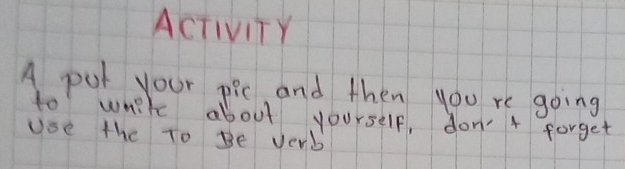 ACTIVITY
A put your pic and then you re going
to write about yourself, don't forget
Use the To Be verb